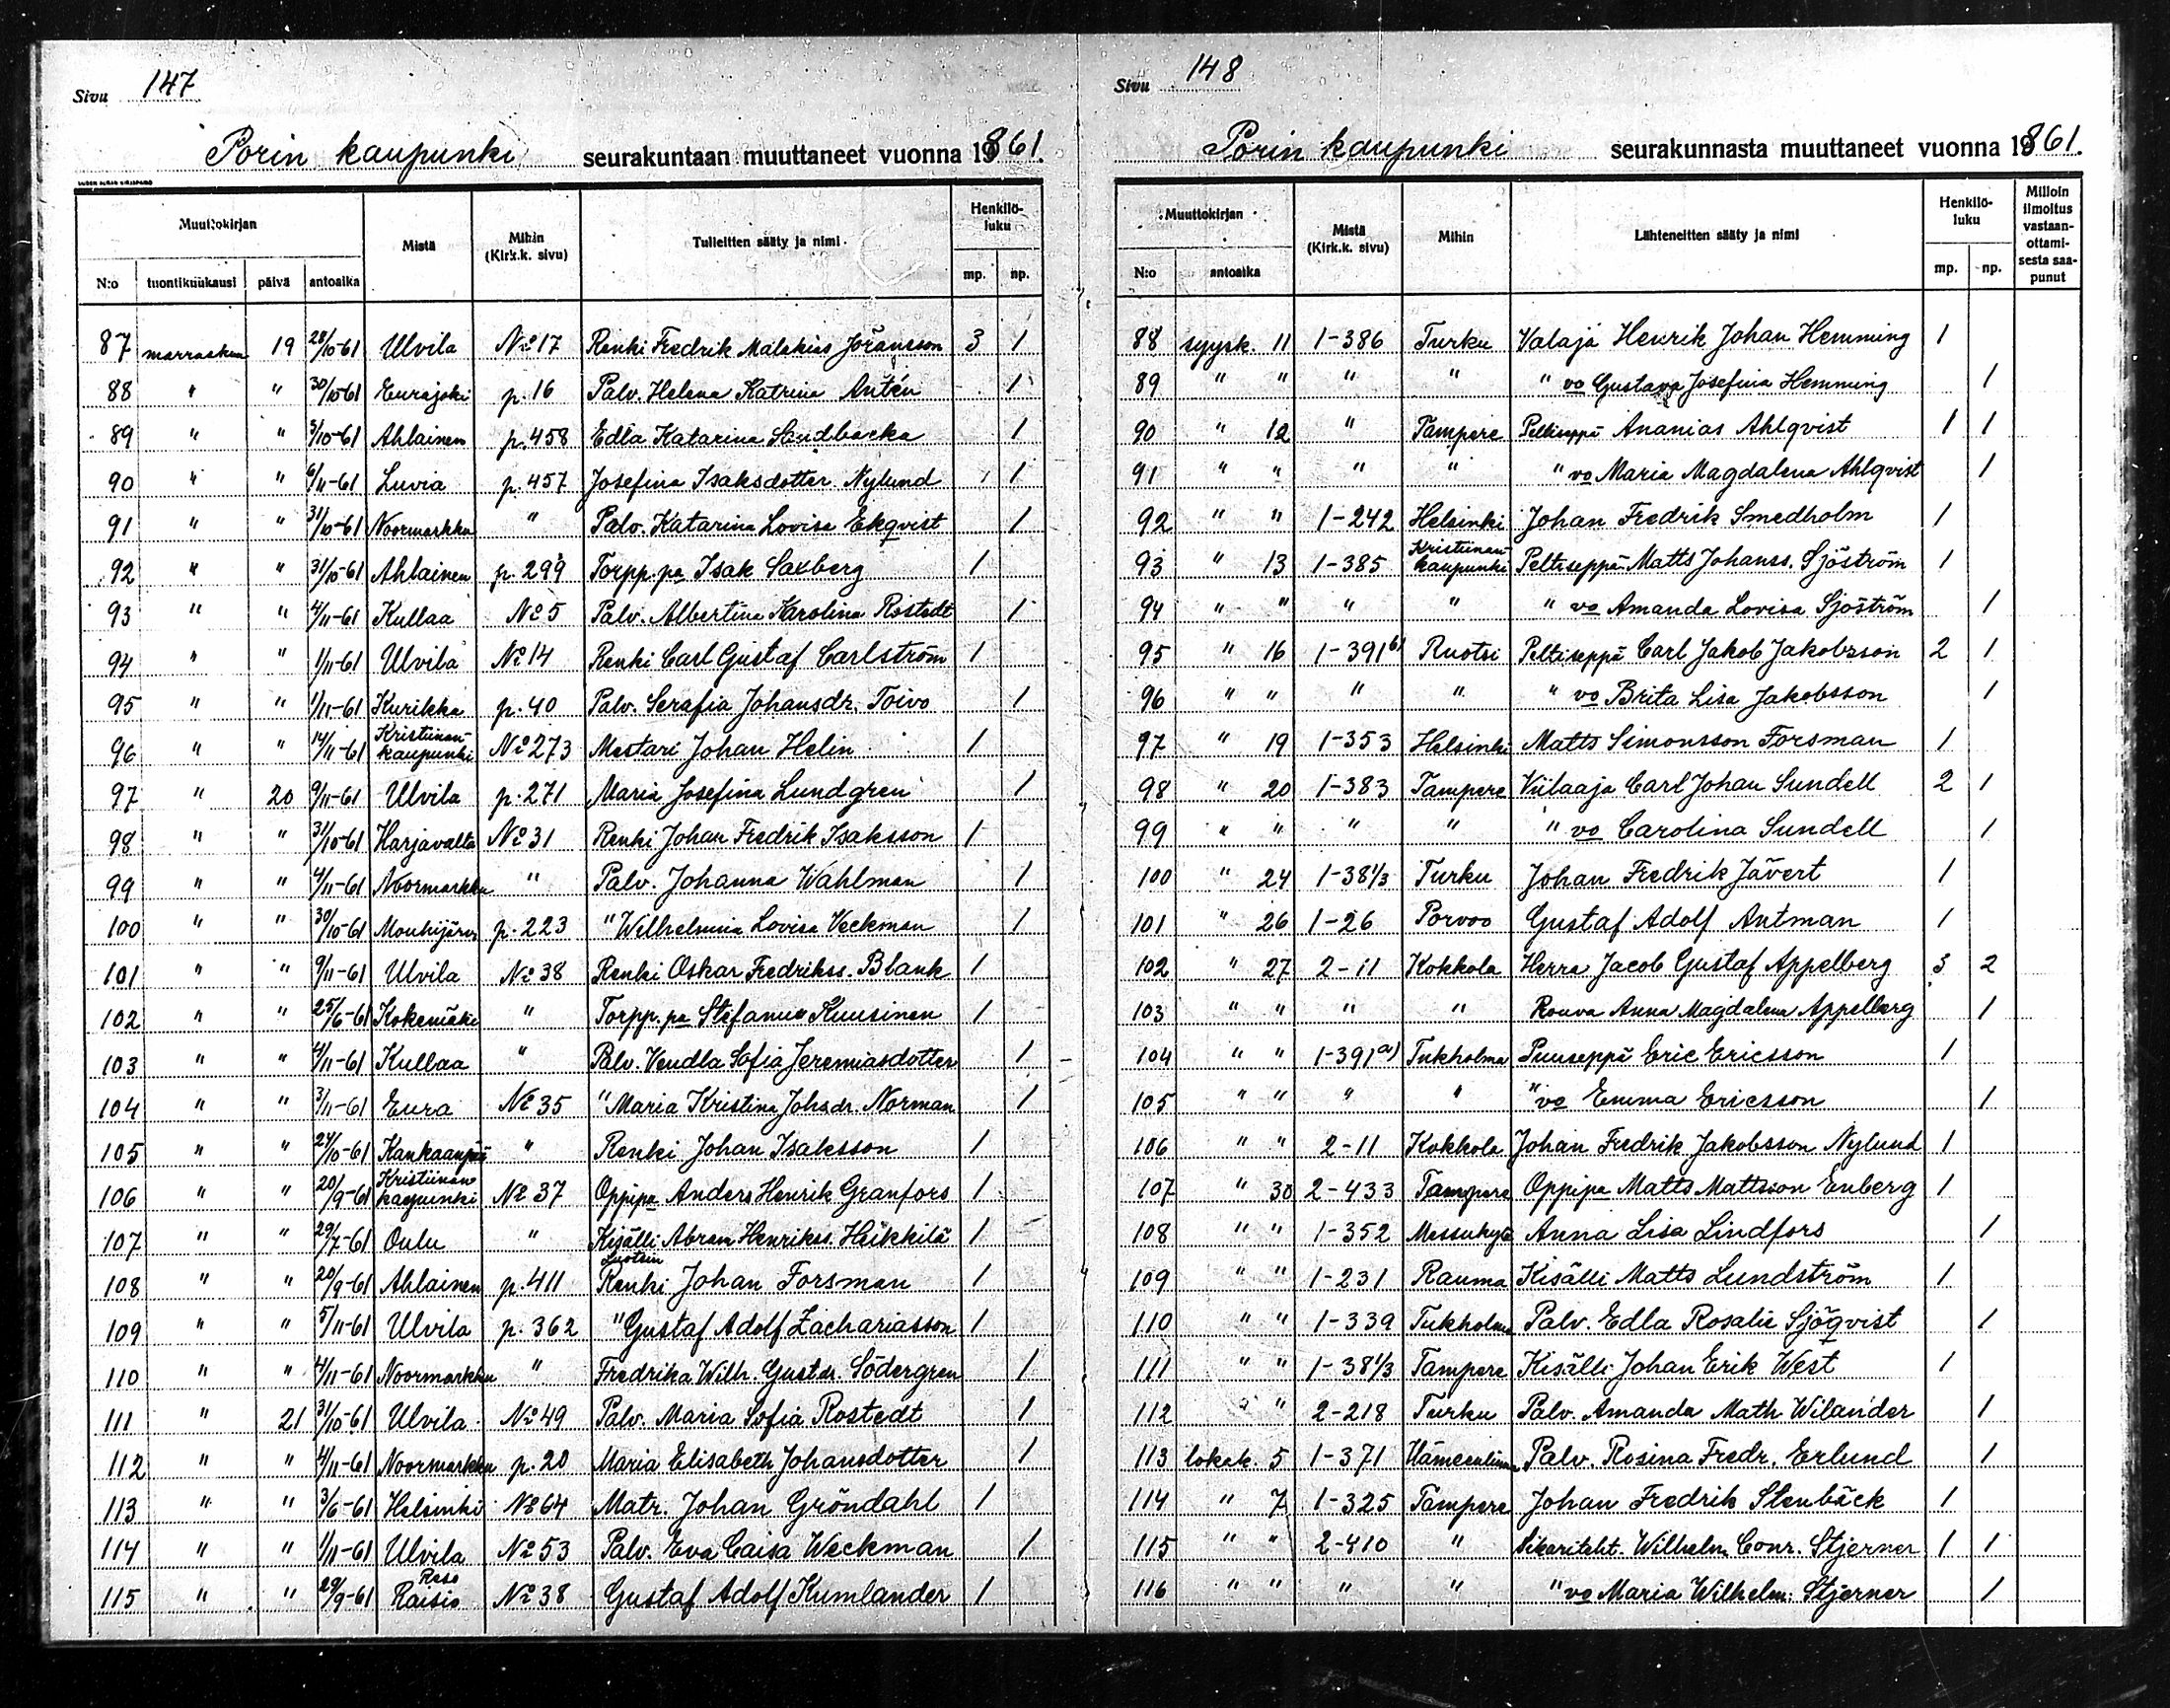 Sivu 147
Porin kaupunki seurakuntaan muuttaneet vuonna 1861.
Muuttokirjan Mistä Mihin (Kirk.k. sivu) Tulleitten sääty ja nimi Henkilö-luku
N:o tuontikuukausi päivä antoaika mp. np.
87 marraskuu 19 28/10-61 Ulvila No 17 Renki Fredrik Malakias Jöransson 3 1
88 " " 30/10-61 Eurajoki p. 16 Palv. Helena Katrina Antén 1
89 " " 3/10-61 Ahlainen p. 458 Edla Katarina Sandbacka 1
90 " " 6/11-61 Luvia p. 457 Josefina Isaksdotter Nylund 1
91 " " 31/10-61 Noormarkku " Palv. Katarina Lovisa Ekqvist 1
92 " " 31/10-61 Ahlainen p. 299 Torpp.pa Isak Saxberg 1
93 " " 4/11-61 Kullaa No 5 Palv. Albertina Karolina Rostedt 1
94 " " 1/11-61 Ulvila No 14 Renki Carl Gustaf Carlström 1
95 " " 1/11-61 Kurikka p. 40 Palv. Serafia Johansdr. Toivo 1
96 " " 14/11-61 Kristiinan-kaupunki No 273 Mestari Johan Helin 1
97 " 20 9/11-61 Ulvila p. 271 Maria Josefina Lundgren 1
98 " " 31/10-61 Harjavalta No 31 Renki Johan Fredrik Isaksson 1
99 " " 4/11-61 Noormarkku " Palv. Johanna Wahlman 1
100 " " 30/10-61 Mouhijärvi p. 223 " Wilhelmina Lovisa Veckman 1
101 " " 9/11-61 Ulvila No 38 Renki Oskar Fredrikss. Blank 1
102 " " 25/6-61 Kokemäki " Torpp.pa Stefanus Kuusinen 1
103 " " 4/11-61 Kullaa " Palv. Vendla Sofia Jeremiasdotter 1
104 " " 3/11-61 Eura No 35 " Maria Kristina Johsdr. Norman 1
105 " " 24/10-61 Kankaanpää " Renki Johan Isaksson 1
106 " " 20/9-61 Kristiinan-kaupunki No 37 Oppipa Anders Henrik Granfors 1
107 " " 29/7-61 Oulu " Kisälli Abram Henrikss. Heikkilä 1
Luotsin
108 " " 20/9-61 Ahlainen p. 411 Renki Johan Forsman 1
109 " " 5/11-61 Ulvila p. 362 " Gustaf Adolf Zachariasson 1
110 " " 4/11-61 Noormarkku " Fredrika Wilh. Gustdr. Södergren 1
111 " 21 31/10-61 Ulvila No 49 Palv. Maria Sofia Rostedt 1
112 " " 4/11-61 Noormarkku p. 20 Maria Elisabeth Johansdotter 1
113 " " 3/6-61 Helsinki No 64 Matr. Johan Gröndahl 1
114 " " 1/11-61 Ulvila No 53 Palv. Eva Caisa Weckman 1
Reso
115 " " 29/9-61 Raisio No 38 Gustaf Adolf Kumlander 1
Sivu 148
Porin kaupunki seurakunnasta muuttaneet vuonna 1861.
Muuttokirjan Mistä (Kirk.k. sivu) Mihin Lähteneitten sääty ja nimi Henkilö-luku Milloin ilmoitus vastaan-ottami-sesta saa-punut
N:o antoaika mp. np.
88 syysk. 11 1-386 Turku Valaja Henrik Johan Hemming 1
89 " " " " " vo Gustava Josefina Hemming 1
90 " 12 " Tampere Peltiseppä Ananias Ahlqvist 1 1
91 " " " " " vo Maria Magdalena Ahlqvist 1
92 " " 1-242 Helsinki Johan Fredrik Smedholm 1
93 " 13 1-385 Kristiinan-kaupunki Peltiseppä Matts Johanss. Sjöström 1
94 " " " " " vo Amanda Lovisa Sjöström 1
95 " 16 1-391 b) Ruotsi Peltiseppä Carl Jakob Jakobsson 2 1
96 " " " " " vo Brita Lisa Jakobsson 1
97 " 19 1-353 Helsinki Matts Simonsson Forsman 1
98 " 20 1-383 Tampere Viilaaja Carl Johan Sundell 2 1
99 " " " " " vo Carolina Sundell 1
100 " 24 1-381/3 Turku Johan Fredrik Jävert 1
101 " 26 1-26 Porvoo Gustaf Adolf Antman 1
102 " 27 2-11 Kokkola Herra Jacob Gustaf Appelberg 3 2
103 " " " " Rouva Anna Magdalena Appelberg 1
104 " " 1-391 a) Tukholma Puuseppä Eric Ericsson 1
105 " " " " " vo Emma Ericsson 1
106 " " 2-11 Kokkola Johan Fredrik Jakobsson Nylund 1
107 " 30 2-433 Tampere Oppipa Matts Mattsson Enberg 1
108 " " 1-352 Messukylä Anna Lisa Lindfors 1
109 " " 1-231 Rauma Kisälli Matts Lundström 1
110 " " 1-339 Tukholma Palv. Edla Rosalie Sjöqvist 1
111 " " 1-381/3 Tampere Kisälli Johan Erik West 1
112 " " 2-218 Turku Palv. Amanda Math Wilander 1
113 lokak. 5 1-371 Hämeenlinna Palv. Rosina Fredr. Erlund 1
114 " 7 1-325 Tampere Johan Fredrik Stenbäck 1
115 " " 2-410 " Sikariteht. Wilhelm Conr. Stjerner 1 1
116 " " " " " vo Maria Wilhelm: Stjerner 1